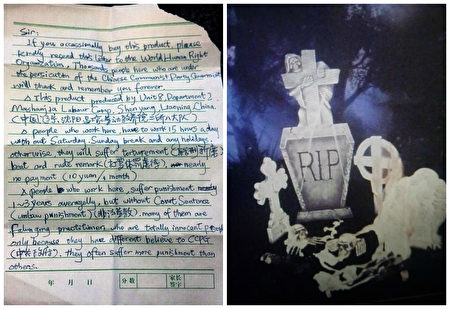 Sir:
If you occassionally buy this product, please
kindly resend this letter to the World Human Right
Organization. Thousands people here who are under
the persicution of the Chinese Communist Party Government
will thank and remember you forever.
This product produced by Unit 8, Department 2,
Mashanjia Labour Camp, Shenyang, Liaoning, China
(中国, 辽宁, 沈阳,
people who work here, have to work 15 hours a day
with out Saturday, Sunday break and any holidays,
otherwise, they will suffer torturement
beat and rude remark nearly
no payment (10 yuan/1 month)
people who work here, suffer punishment nearly
1~3 years averagely, but without Court Sentence
(unlaw punishment) (非法劳教), many of them are
Falungong practitioner, who are totally innocent people
only because they have different believe to CCPG
they often suffer more punishment than
others.
年 月 日
分数
家长
签字
RIP